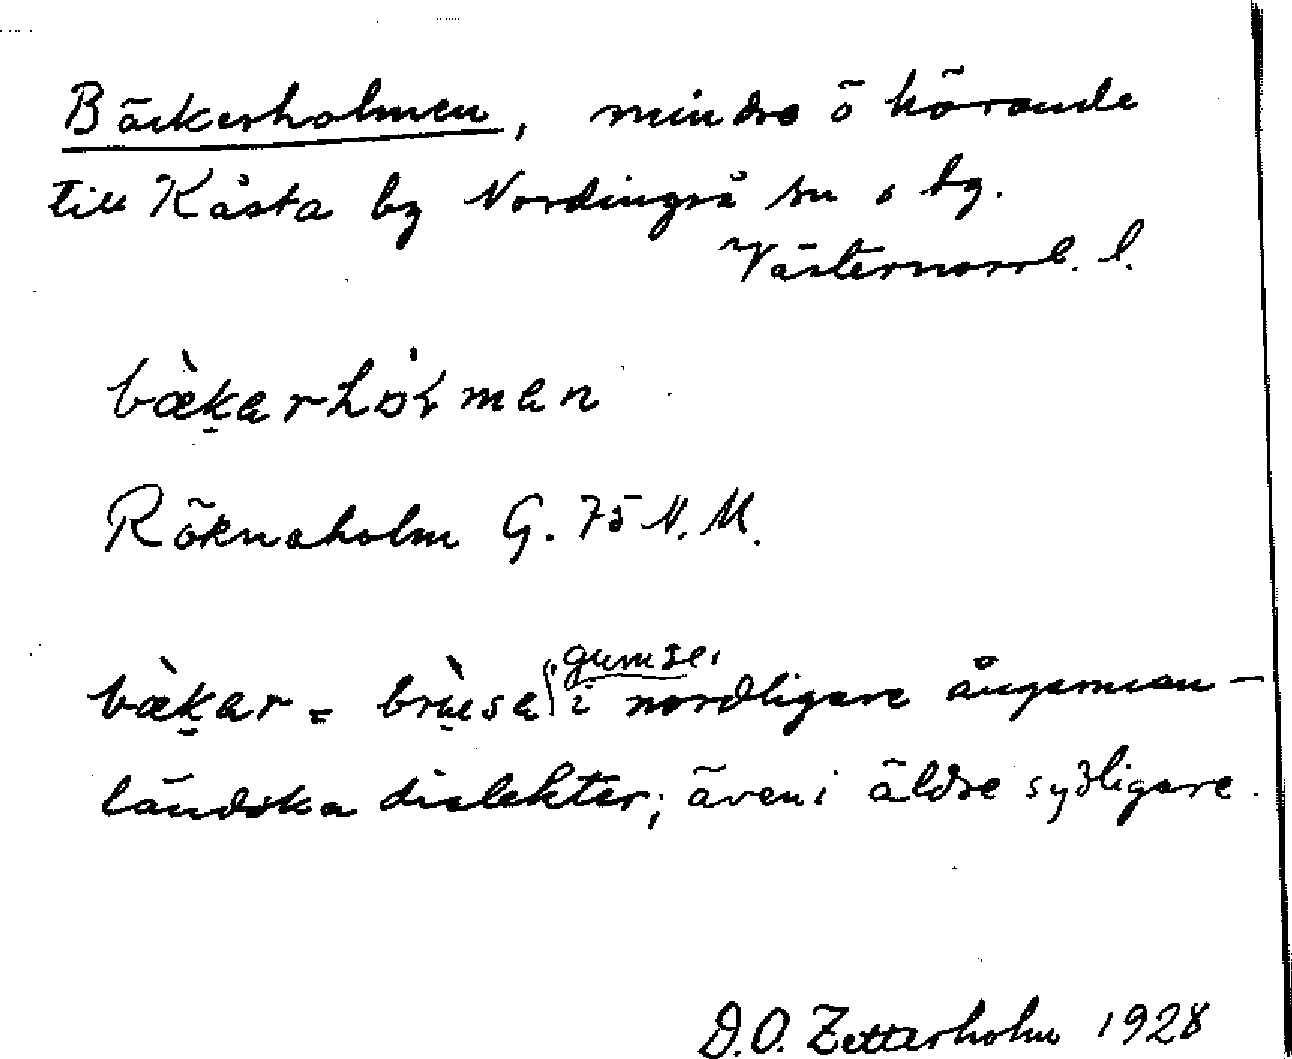 Bäckerholmen, mindre ö hörande
till Kåsta by Nordingrå sn o tg.
Västernorrl. l.
bæ̀karhòłman
Röknaholm G. 75 N. M.
bæ̀kar = brùsa, gumse, i nordligare ångerman-
ländska dialekter; även i äldre sydligare.
D.O. Zetterholm 1928